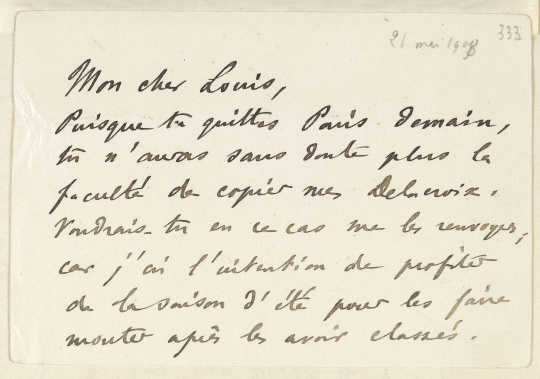 21 mai 1908
333
Mon cher Louis,
Puisque tu quittes Paris demain,
tu n'auras sans doute plus la
faculté de copier mes Delacroix.
Voudrais-tu en ce cas me les renvoyer,
car j'ai l'intention de profiter
de la saison d'été pour les faire
monter après les avoir classés.